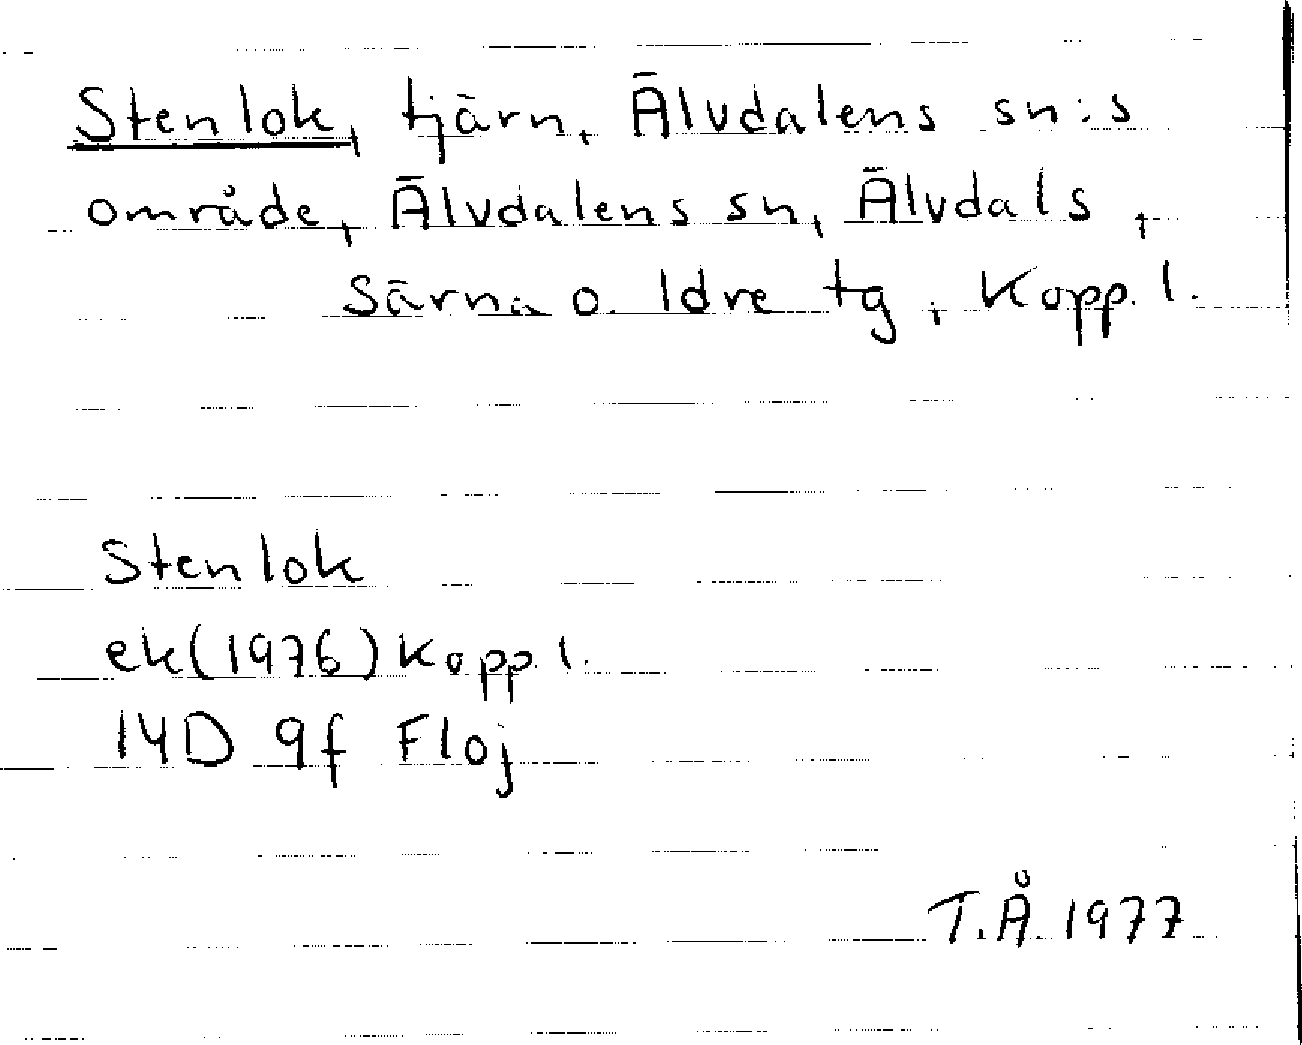 Stenlok, tjärn, Älvdalens sn:s
område, Älvdalens sn, Älvdals,
Särna o. Idre tg, Kopp. l.
Stenlok
ek(1976) Kopp. l.
14D 9f Floj
T.Å. 1977